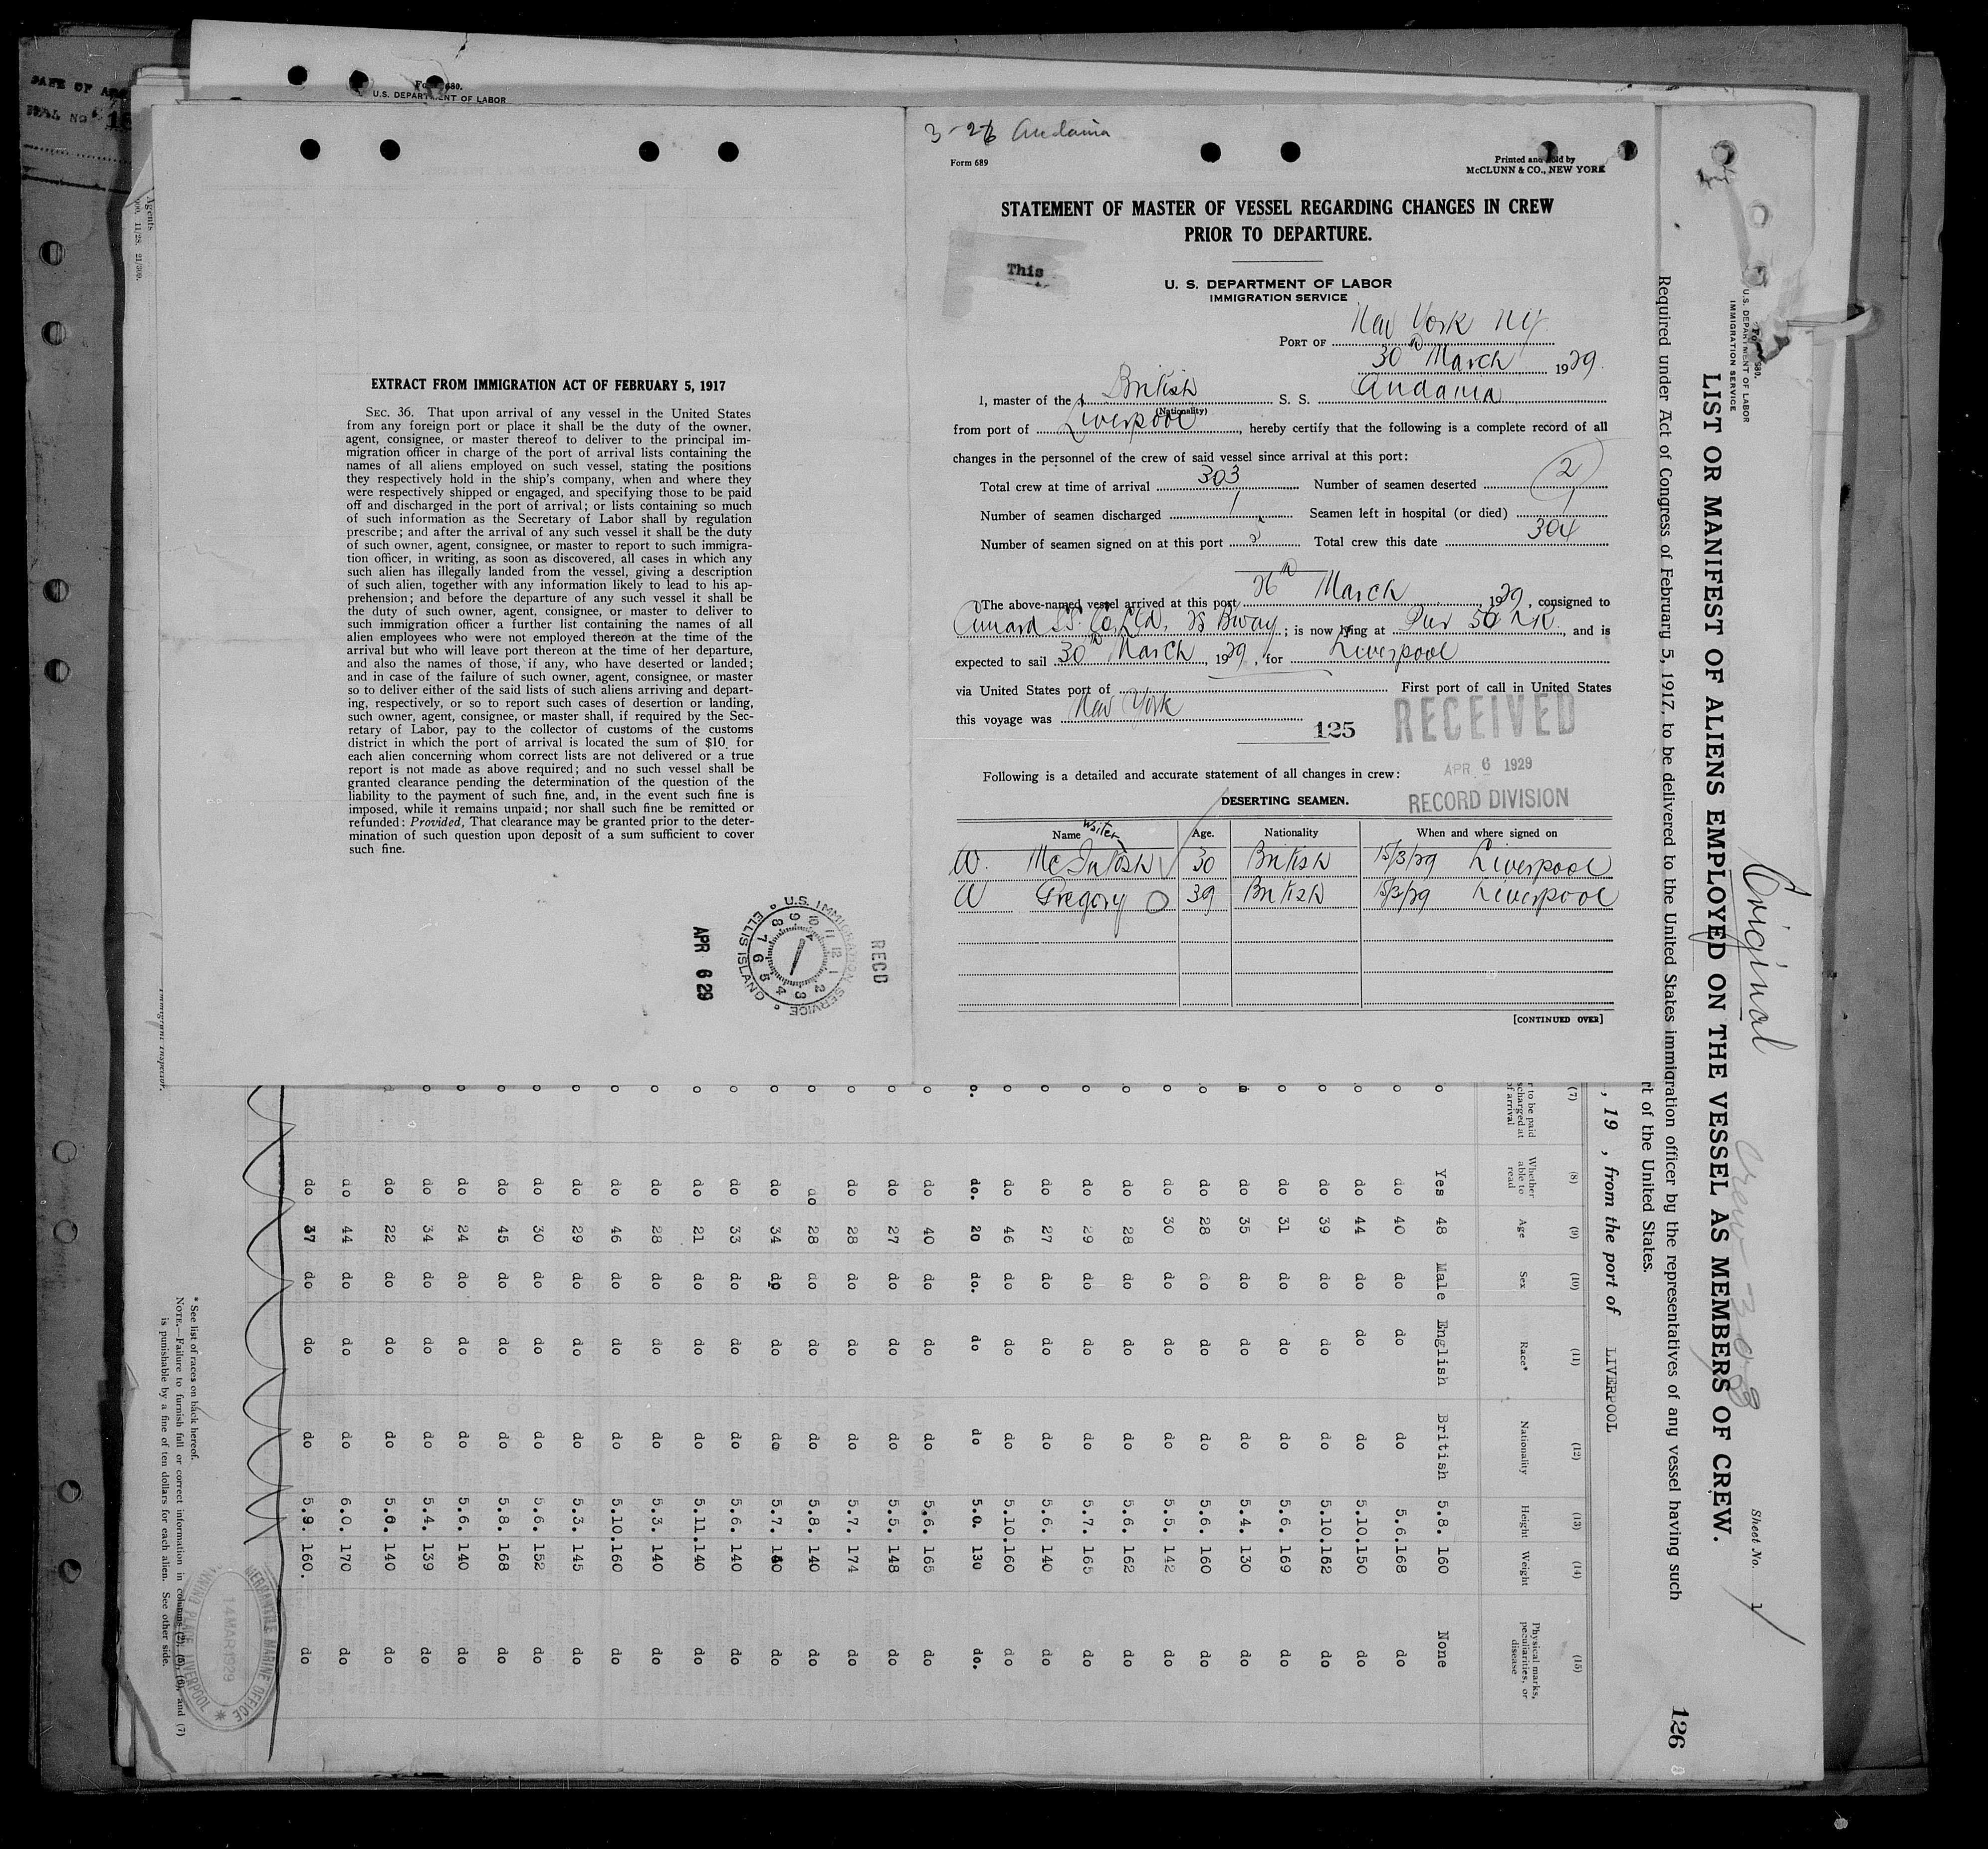 DATE OF
Form 689.
U.S. DEPARTMENT OF LABOR
Agents
11/28. 21/309.
EXTRACT FROM IMMIGRATION ACT OF FEBRUARY 5, 1917
SEC. 36. That upon arrival of any vessel in the United States
from any foreign port or place it shall be the duty of the owner,
agent, consignee, or master thereof to deliver to the principal im-
migration officer in charge of the port of arrival lists containing the
names of all aliens employed on such vessel, stating the positions
they respectively hold in the ship's company, when and where they
were respectively shipped or engaged, and specifying those to be paid
off and discharged in the port of arrival; or lists containing so much
of such information as the Secretary of Labor shall by regulation
prescribe; and after the arrival of any such vessel it shall be the duty
of such owner, agent, consignee, or master to report to such immigra-
tion officer, in writing, as soon as discovered, all cases in which any
such alien has illegally landed from the vessel, giving a description
of such alien, together with any information likely to lead to his ap-
prehension; and before the departure of any such vessel it shall be
the duty of such owner, agent, consignee, or master to deliver to
such immigration officer a further list containing the names of all
alien employees who were not employed thereon at the time of the
arrival but who will leave port thereon at the time of her departure,
and also the names of those, if any, who have deserted or landed;
and in case of the failure of such owner, agent, consignee, or master
so to deliver either of the said lists of such aliens arriving and depart-
ing, respectively, or so to report such cases of desertion or landing,
such owner, agent, consignee, or master shall, if required by the Sec-
retary of Labor, pay to the collector of customs of the customs
district in which the port of arrival is located the sum of $10 for
each alien concerning whom correct lists are not delivered or a true
report is not made as above required; and no such vessel shall be
granted clearance pending the determination of the question of the
liability to the payment of such fine, and, in the event such fine is
imposed, while it remains unpaid; nor shall such fine be remitted or
refunded: Provided, That clearance may be granted prior to the deter-
mination of such question upon deposit of a sum sufficient to cover
such fine.
APR 6 29
U.S. IMMIGRATION SERVICE
ELLIS ISLAND
RECD
Immigrant Inspector.
3-26 Andania
Form 689
Printed and Sold by
McCLUNN & CO., NEW YORK
STATEMENT OF MASTER OF VESSEL REGARDING CHANGES IN CREW
PRIOR TO DEPARTURE.
This
U. S. DEPARTMENT OF LABOR
IMMIGRATION SERVICE
PORT OF New York NY
30th March 1929.
I, master of the British S. S. Andania
(Nationality)
from port of Liverpool, hereby certify that the following is a complete record of all
changes in the personnel of the crew of said vessel since arrival at this port:
Total crew at time of arrival 303 Number of seamen deserted 2
Number of seamen discharged 1 Seamen left in hospital (or died) 1
Number of seamen signed on at this port Total crew this date 304
The above-named vessel arrived at this port 26th March, 1929, consigned to
Cunard SS. Co. Ltd. 25 Bway; is now lying at Pier 56 NR., and is
expected to sail 30th March, 1929, for Liverpool
via United States port of First port of call in United States
this voyage was New York
125
RECEIVED
APR 6 1929
RECORD DIVISION
Following is a detailed and accurate statement of all changes in crew:
DESERTING SEAMEN.
Name Waiter Age. Nationality When and where signed on
W. McIntosh 30 British 15/3/29 Liverpool
W Gregory 39 British 15/3/29 Liverpool
[CONTINUED OVER]
Original
Crew - 303
Sheet No. 1
Form 689.
U.S. DEPARTMENT OF LABOR
IMMIGRATION SERVICE
LIST OR MANIFEST OF ALIENS EMPLOYED ON THE VESSEL AS MEMBERS OF CREW.
Required under Act of Congress of February 5, 1917, to be delivered to the United States immigration officer by the representatives of any vessel having such
rt of the United States.
126
, 19 , from the port of LIVERPOOL
(7) (8) (9) (10) (11) (12) (13) (14) (15)
r to be paid
scharged at
of arrival
Whether able to read Age Sex Race* Nationality Height Weight Physical marks, peculiarities, or disease
o Yes 48 Male English British 5.8. 160 None
o do 40 do do do 5.6. 168 do
o do 44 do do do 5.10. 150 do
o do 39 do do do 5.10. 152 do
o do 31 do do do 5.6. 169 do
do 35 do do do 5.4. 130 do
o do 28 do do do 5.6. 160 do
o do 30 do do do 5.5. 142 do
o do 28 do do do 5.6. 162 do
o do 29 do do do 5.7. 165 do
o do 27 do do do 5.6. 140 do
o do 46 do do do 5.10. 160 do
o. do. 20 do. do do 5.0. 130 do.
o do 40 do do do 5.6. 165 do
o do 27 do do do 5.5. 148 do
o do 28 do do do 5.7. 174 do
o do 28 do do do 5.8. 140 do
o do 34 do do do 5.7. do
o do 33 do do do 5.6. 140 do
o do 21 do do do 5.11. 140 do
o do 28 do do do 5.3. 140 do
o do 46 do do do 5.10. 160 do
o do 29 do do do 5.3. 145 do
o do 30 do do do 5.6. 152 do
o do 45 do do do 5.8. 168 do
o do 24 do do do 5.6. 140 do
o do 34 do do do 5.4. 139 do
do 22 do do do 140 do
o do 44 do do do 6.0. 170 do
o do 37 do do do 5.9. 160. do
* See list of races on back hereof.
NOTE.—Failure to furnish full or correct information in columns (2), (5), (6), and (7)
is punishable by a fine of ten dollars for each alien. See other side.
MERCANTILE MARINE OFFICE
14 MAR 1929
LIVERPOOL